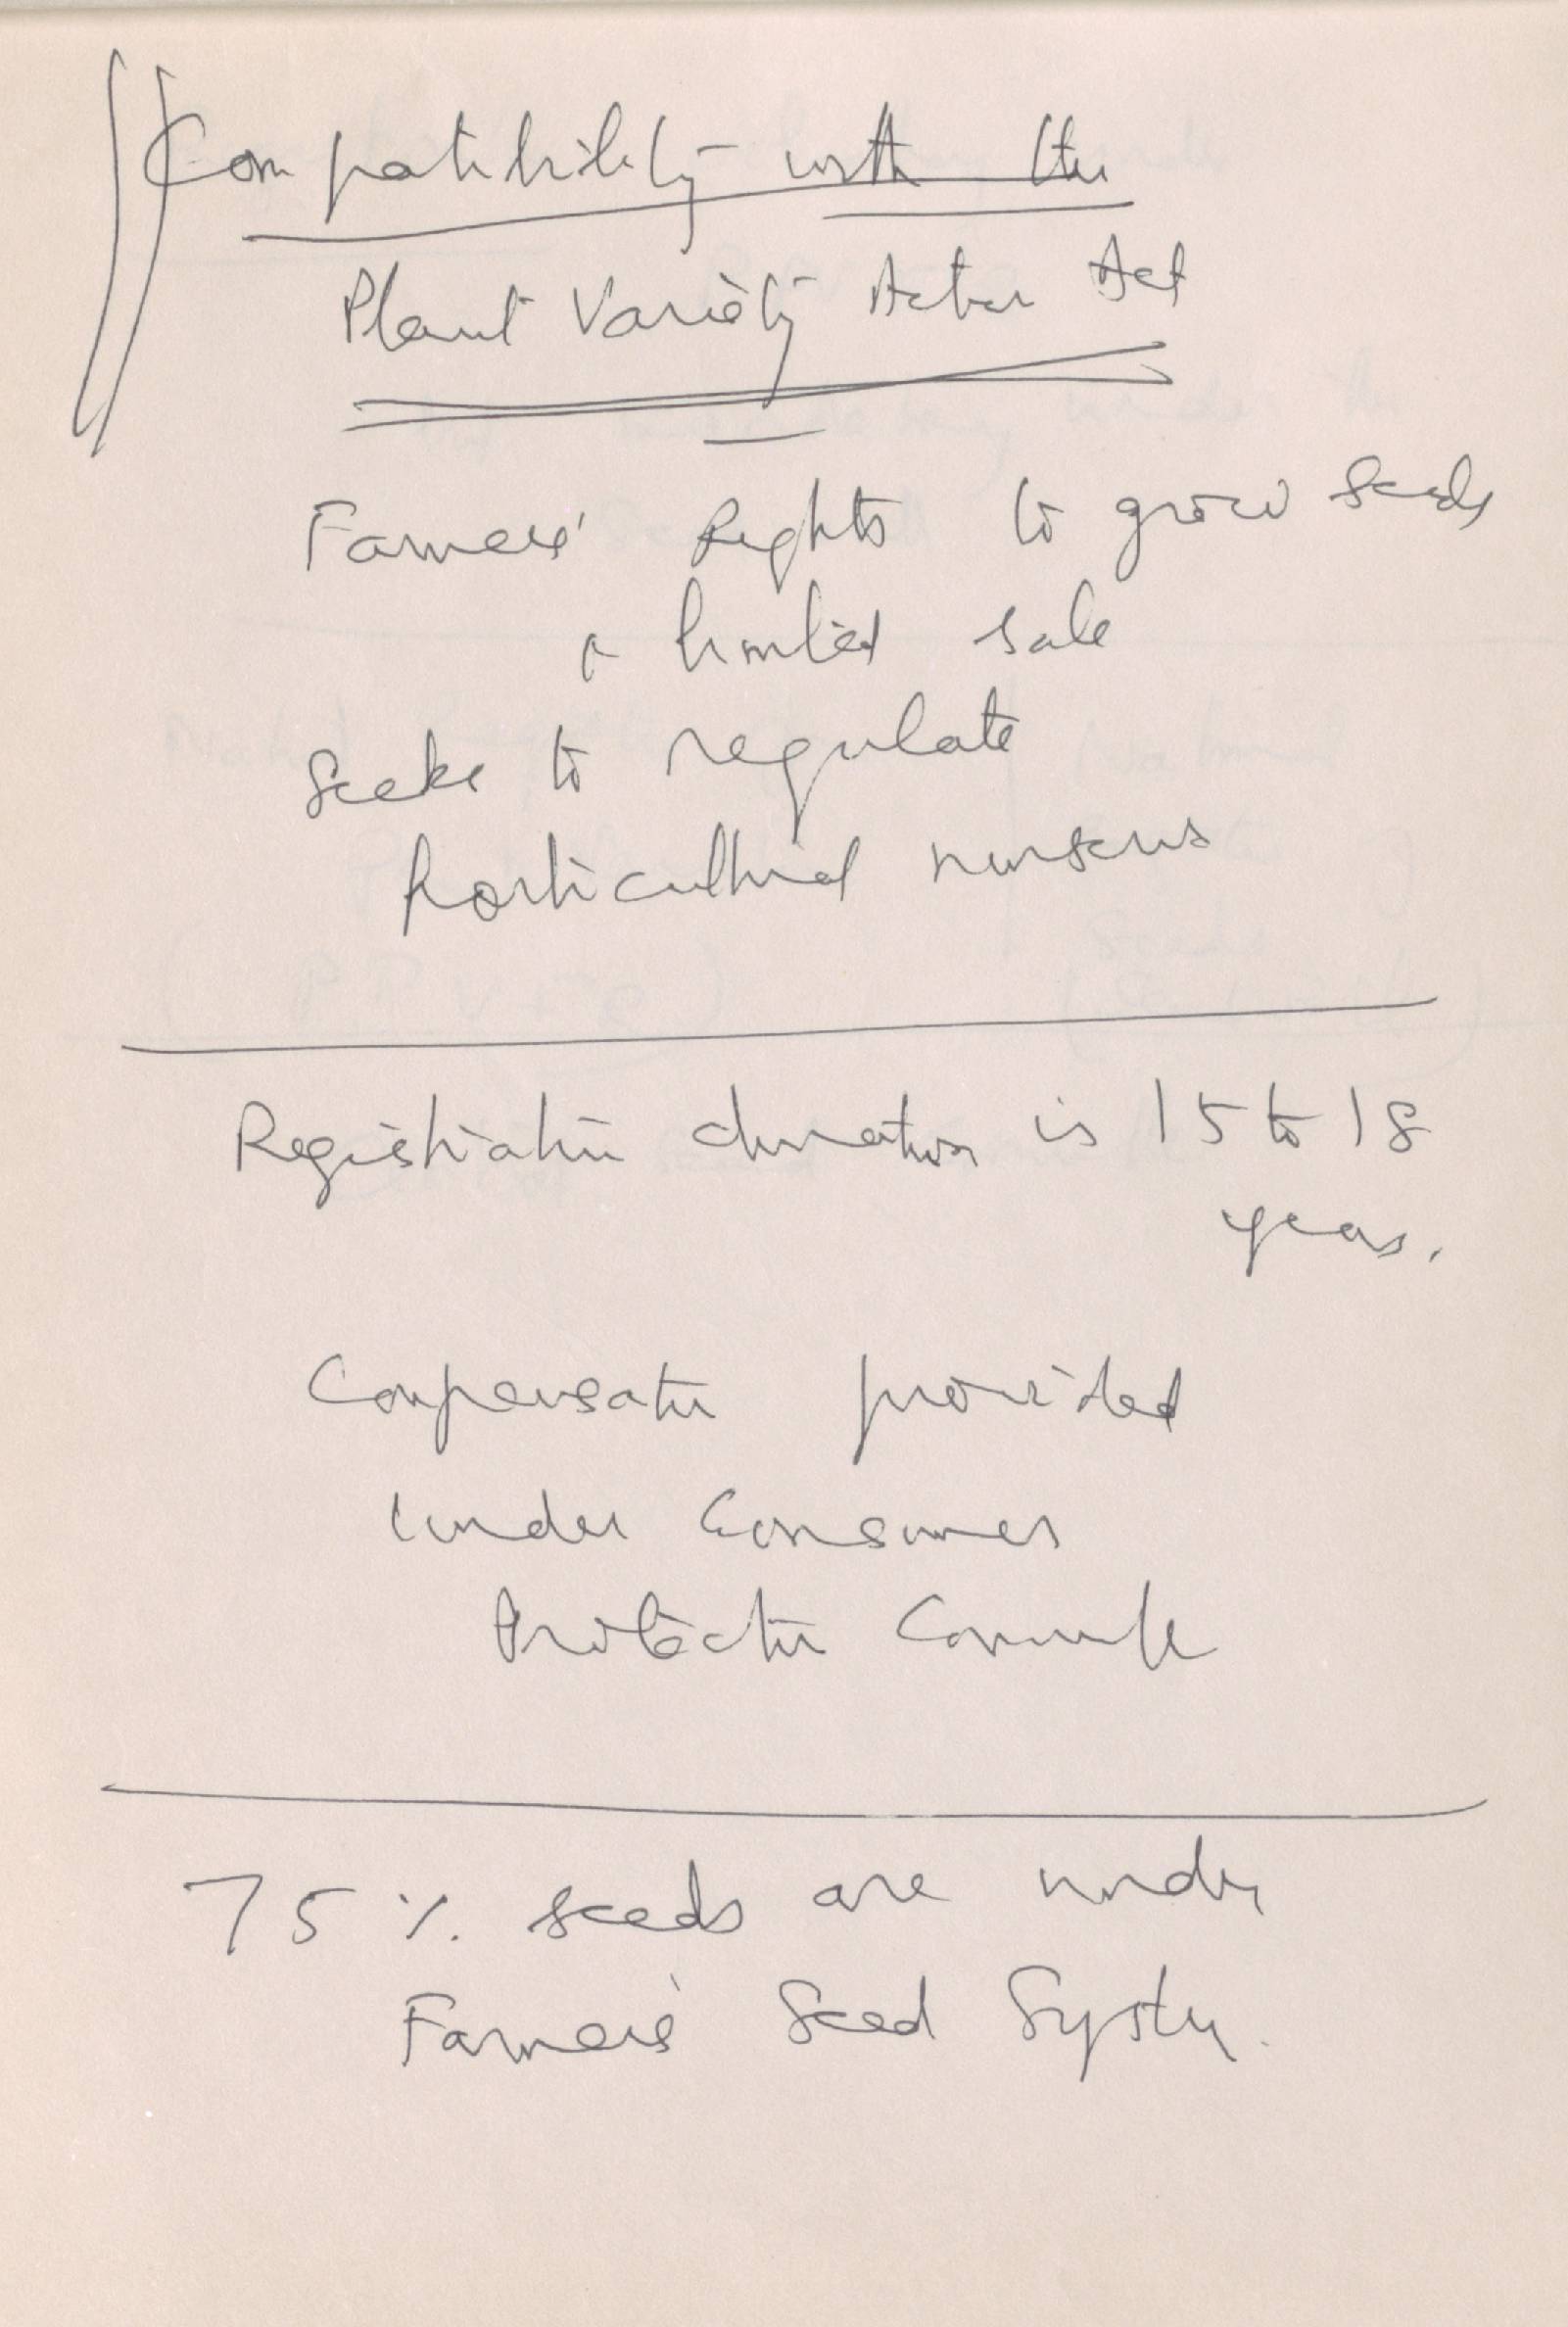 Compatibility with the
Plant Variety Action Act
Farmers' Rights to grow seeds
& limited sale
Seeks to regulate
horticultural nurseries
Registration duration is 15 to 18
years.
Compensation provided
under Consumer
Protection
75 % seeds are under
Farmers' Seed System.